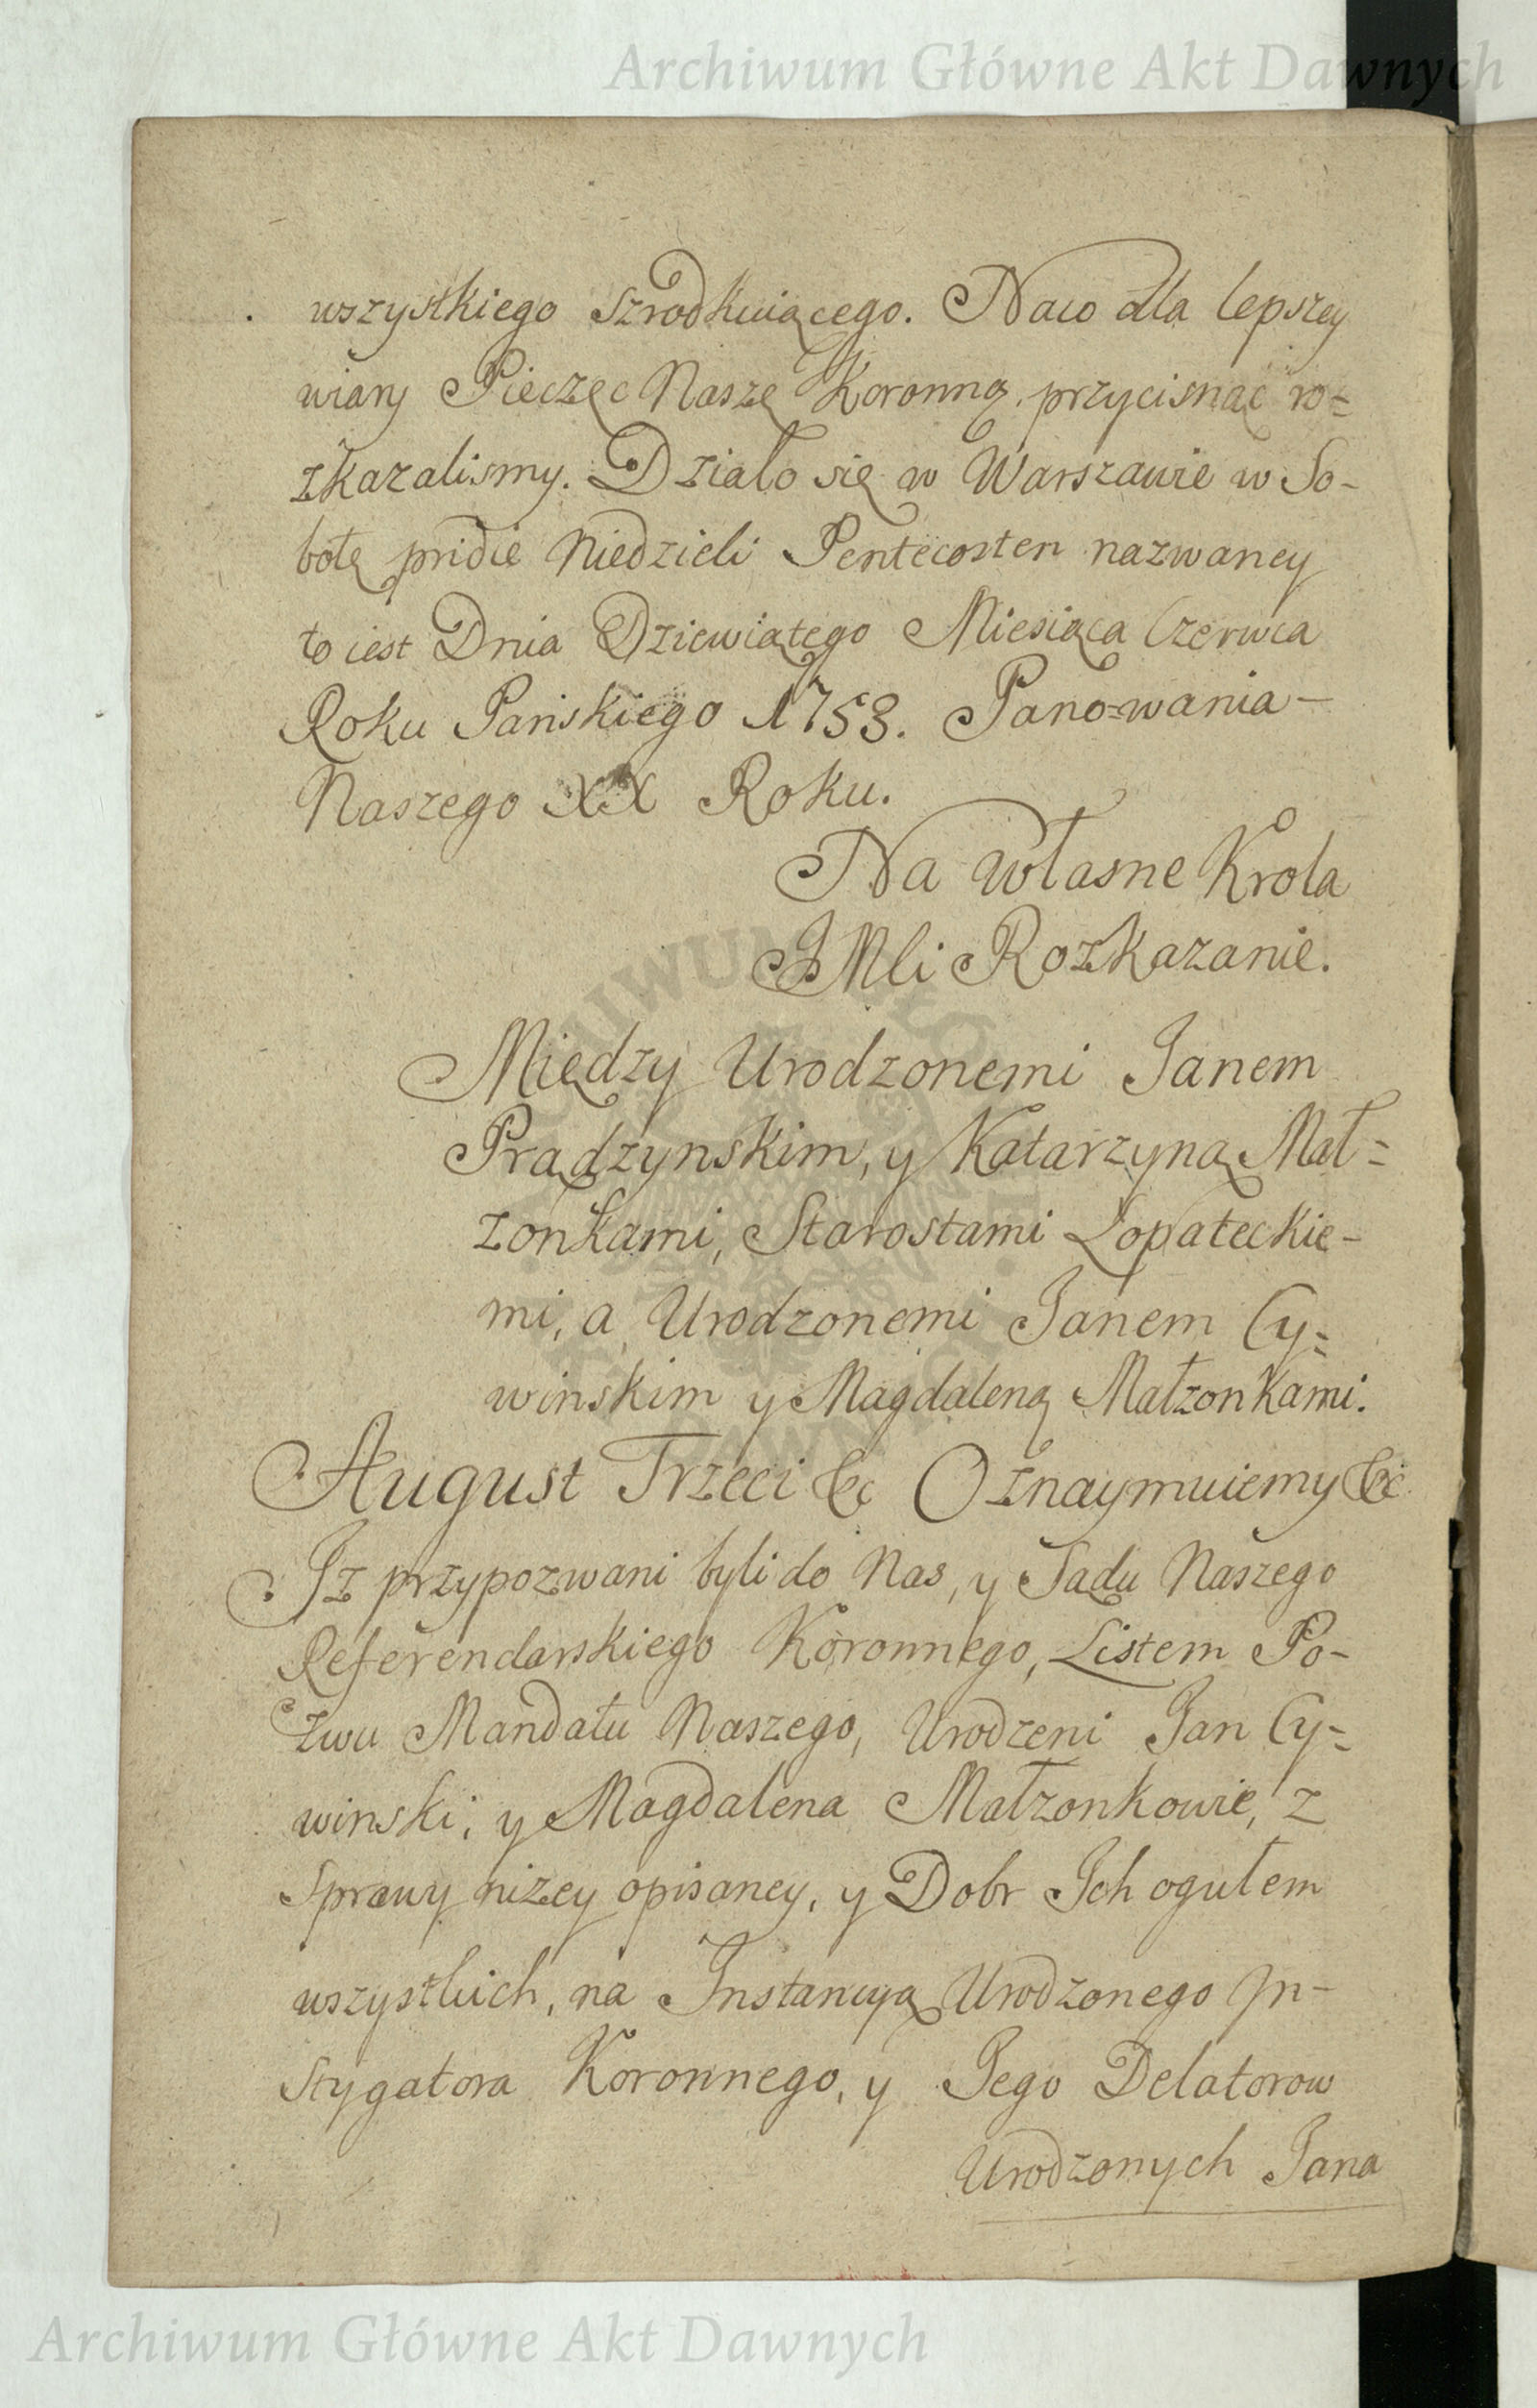 Archiwum Główne Akt Dawnych
wszystkiego szrodkuiącego. Naco dla lepszey
wiary Pieczęc Naszę Koronną przycisnąć ro=
zkazalismy. Działo się w Warszawie w So-
botę pridie Niedzieli Pentecosten nazwaney
to iest Dnia Dziewiątego Miesiąca Czerwca
Roku Pańskiego 1753. Pano=wania -
Naszego XX Roku.
Na Własne Krola
JMci Rozkazanie.
Między Urodzonemi Janem
Prądzynskim, y Katarzyną Mał=
zonkami, Starostami Łopateckie-
mi, a Urodzonemi Janem Cy=
winskim y Magdaleną Małzonkami.
August Trzeci &c Oznaymuiemy &c
Iz przypozwani byli do Nas, y Sądu Naszego
Referendarskiego Koronnego, Listem Po-
zwu Mandatu Naszego, Urodzeni Jan Cy=
winski; y Magdalena Małzonkowie, z
Sprawy niżey opisaney, y Dobr Ich ogułem
wszystkich, na Instancyą Urodzonego In-
stygatora Koronnego, y Jego Delatorow
Urodzonych Jana
Archiwum Główne Akt Dawnych